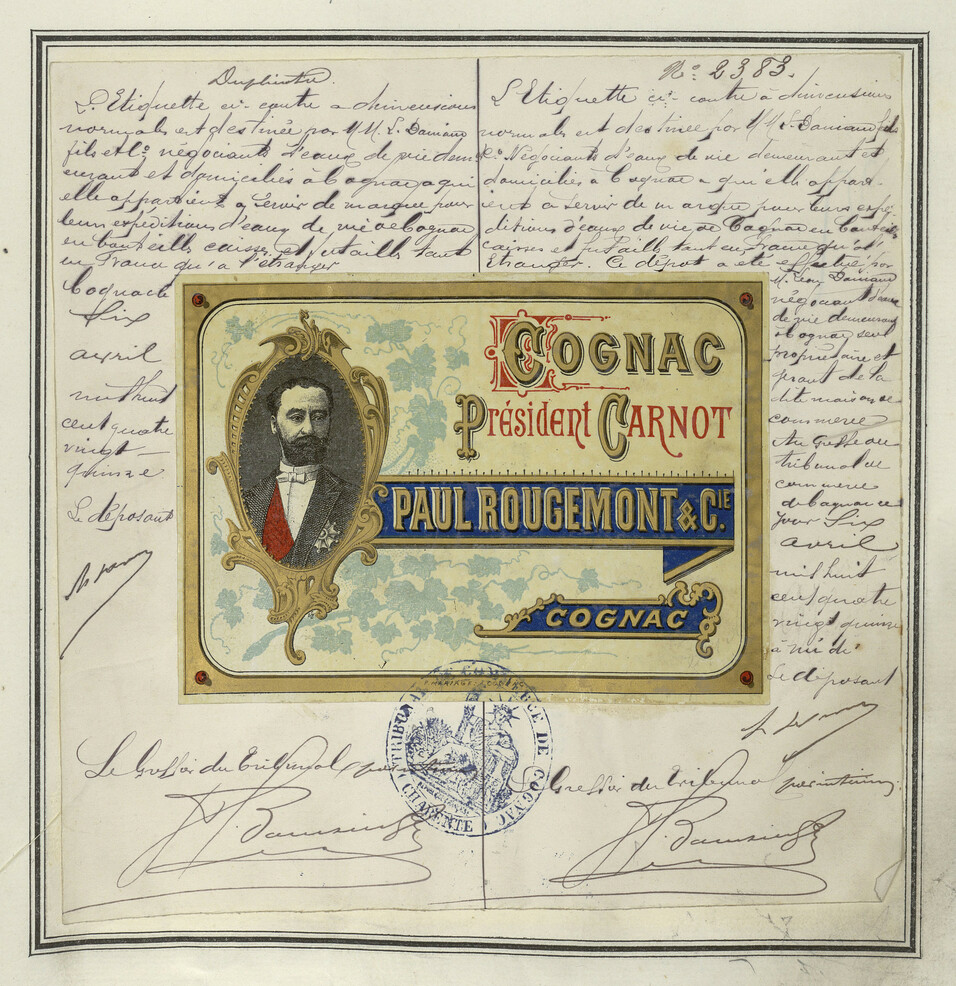 Duplicata.
L'Etiquette ci-contre à dimensions
normales est destinée par MM. L. Damiand
fils et Cº négociants d'eaux de vie dem
eurant et domiciliés à Cognac a qui
elle appartient a servir de marque pour
leurs expéditions d'eaux de vie de Cognac
en bouteilles caisses et futailles tant
en France qu'a l'étranger
Cognac le
Six
avril
mil huit
cent quatre
vingt
quinze
Le déposant
Nº 2383.
L'Etiquette ci-contre à dimensions
normales est destinée par MM. L. Damiand fils
Cº Négociants d'eaux de vie demeurant et
domiciliés à Cognac a qui elle appart-
ient a servir de marque pour leurs expé-
ditions d'eaux de vie de Cognac en bouteilles
caisses et futailles tant en France qu'à l'
Etranger. Ce dépot a été effectué par
M. Léon Damiand
négociant d'eaux
de vie demeurant
à Cognac seul
propriétaire et
gérant de la
dite maison de
commerce
Au Greffe du
tribunal de
commerce
de Cognac ce
jour Six
avril
mil huit
cent quatre
vingt quinze
a midi
Le déposant
COGNAC
Président CARNOT
PAUL ROUGEMONT & CIE
COGNAC
TRIBUNAL DE COMMERCE DE COGNAC
(CHARENTE)
Le Greffier du Tribunal par intérim
Le Greffier du Tribunal par intérim.